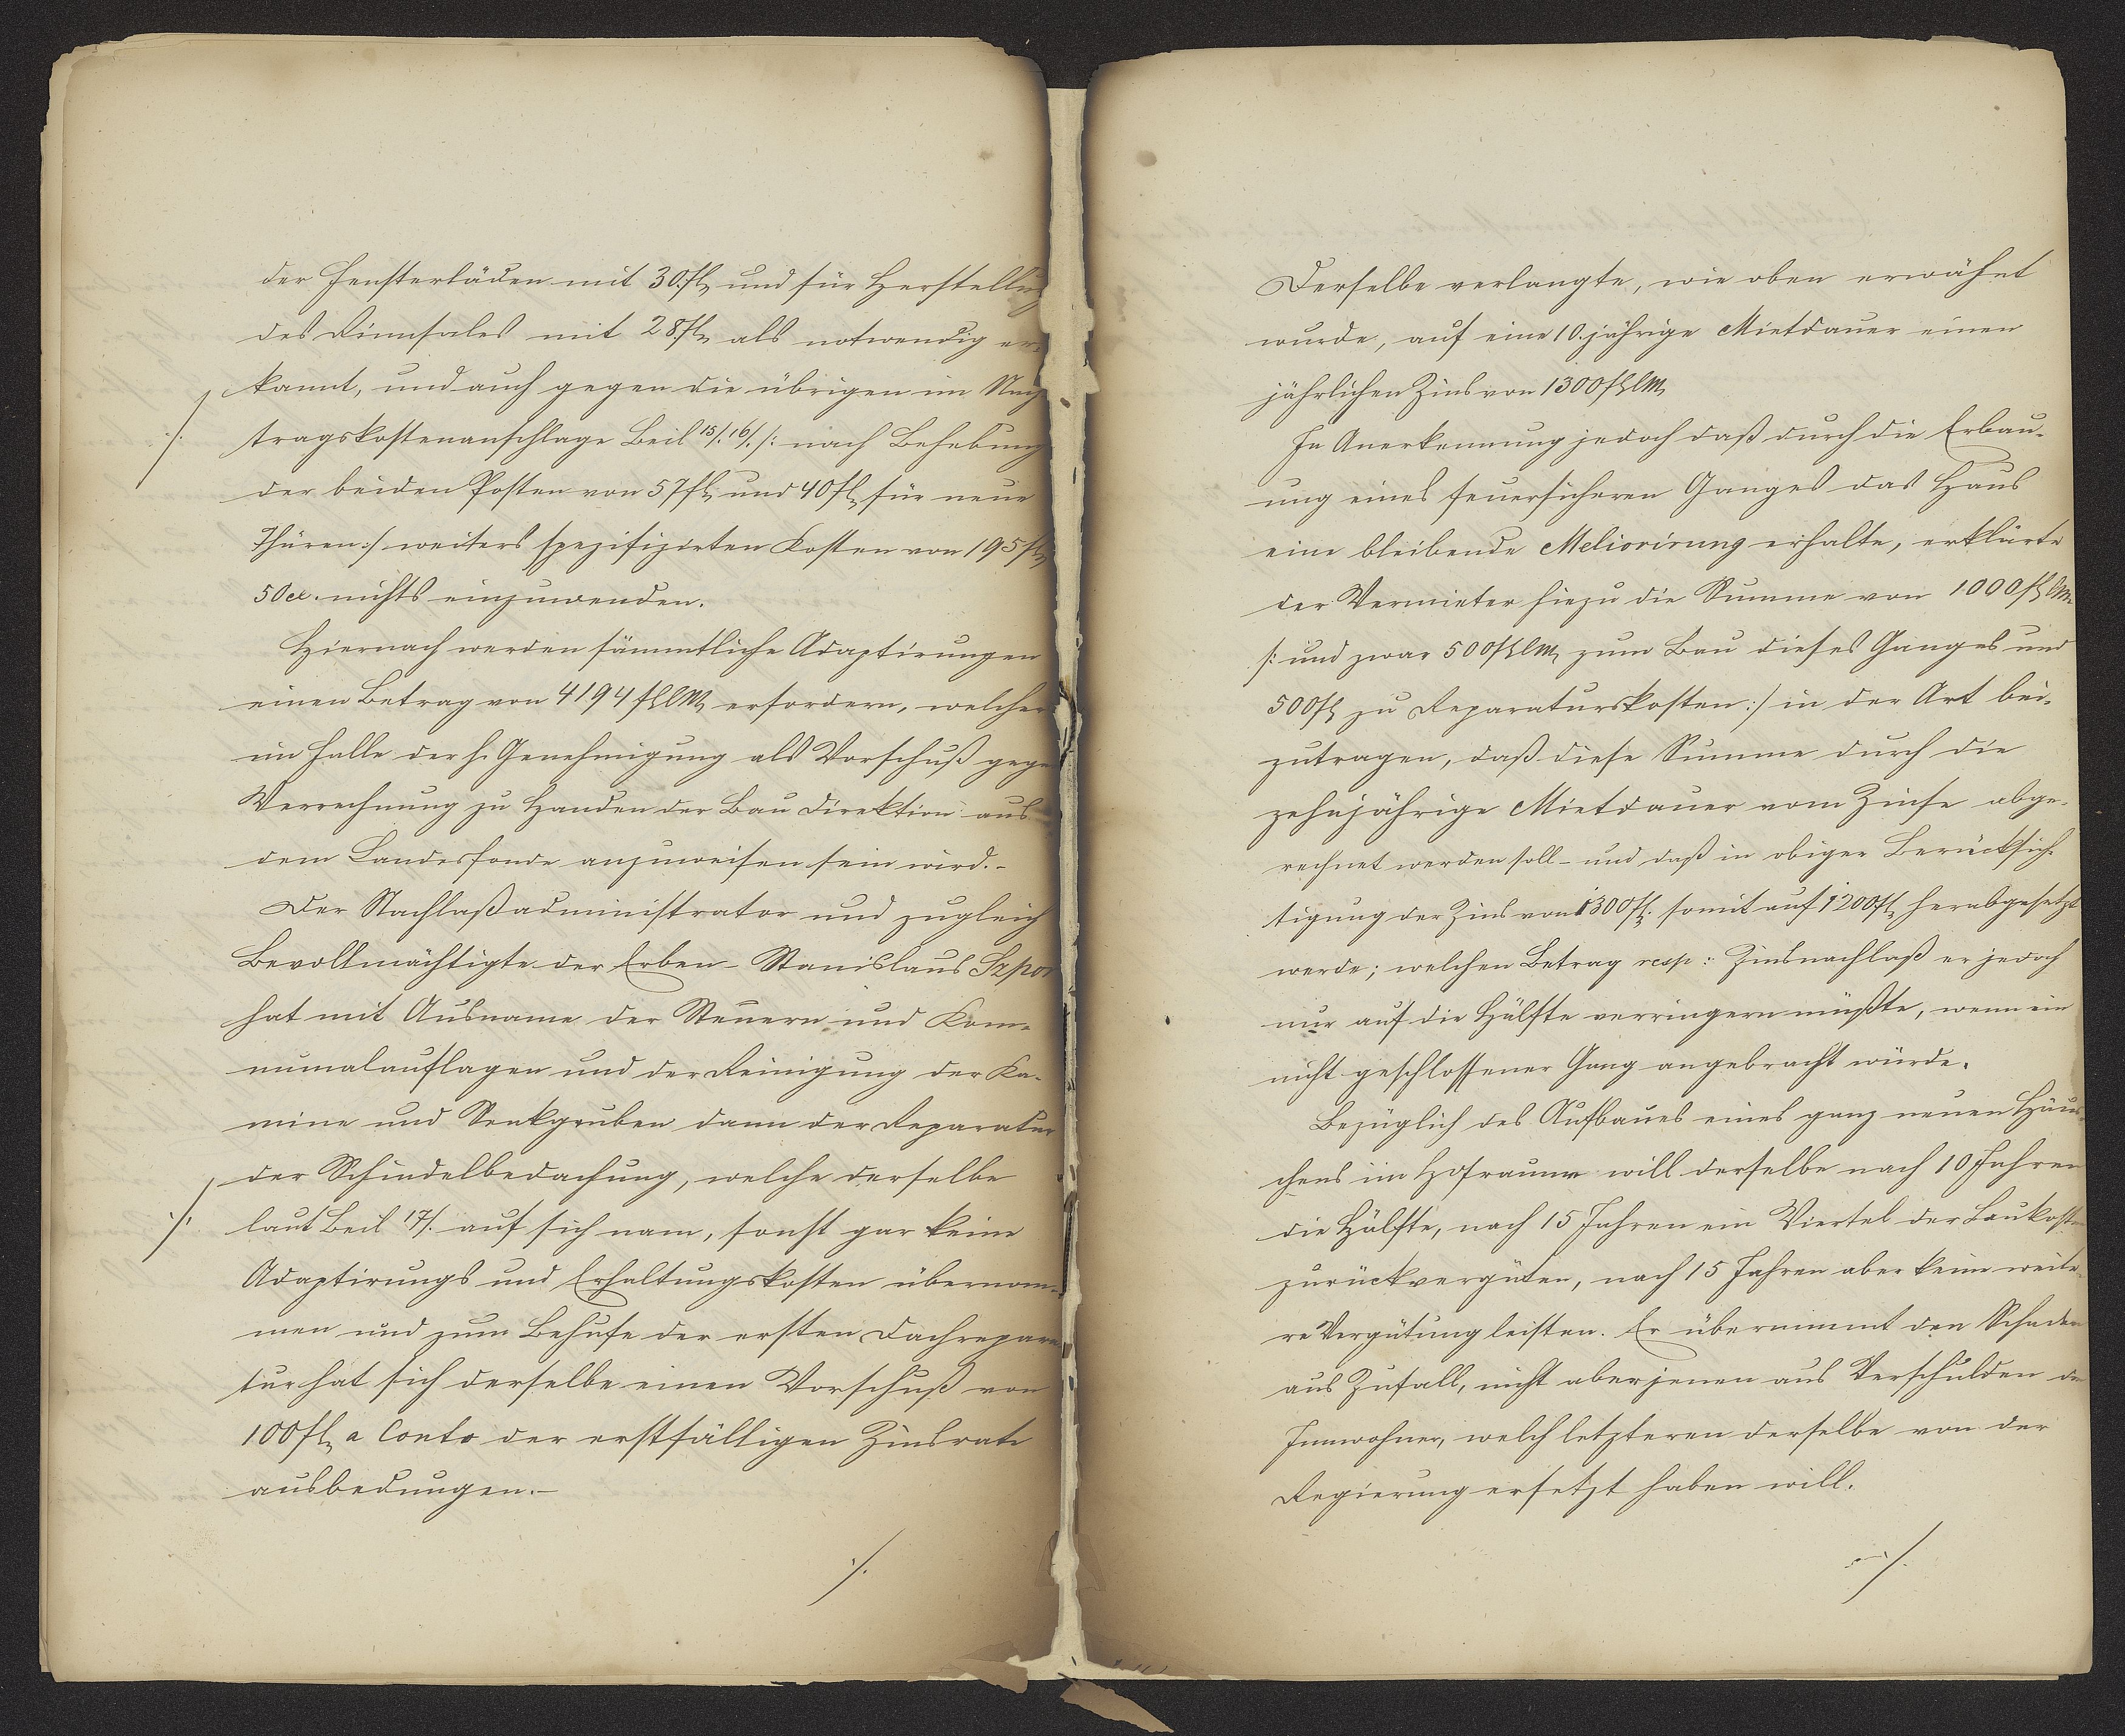 der Fensterläden mit 30 fl und für Herstellung
des Rinnsales mit 28 fl als notwendig er-
kannt, und auch gegen die übrigen im Nach
tragskostenanschlage Beil 15/. 16/. /: nach Behebung
der beiden Posten von 57 fl und 40 fl für neue
Thüren :/ weiters spezifizirten Kosten von 195 fl
50 x. nichts einzuwenden.
Hiernach werden sämmtliche Adaptirungen
einen Betrag von 4194 fl CM erfordern, welcher
im Falle der h. Genehmigung als Vorschuß gegen
Verrechnung zu Handen der Bau Direktion aus
dem Landesfonde anzuweisen sein wird.-
Der Nachlaßadministrator und zugleich
Bevollmächtigte der Erben - Stanislaus Szpor
hat mit Ausname der Steuern und Kom-
munalauflagen und der Reinigung der Ka-
mine und Senkgruben dann der Reparatur
der Schindelbedachung, welche derselbe
./. laut Beil 17/. auf sich nam, sonst gar keine
Adaptirungs und Erhaltungskosten übernom-
men und zum Behufe der ersten Dachrepara
tur hat sich derselbe einen Vorschuß von
100 fl a Conto der erstfälligen Zinsrate
ausbedungen.-
./.
Derselbe verlangte, wie oben erwähnt
wurde, auf eine 10. jährige Mietdauer einen
jährlichen Zins von 1300 fl CM
In Anerkennung jedoch daß durch die Erbau-
ung eines feuersicheren Ganges das Haus
eine bleibende Meliorirung erhalte, erklärte
der Vermieter hiezu die Summe von 1000 fl CM
/: und zwar 500 fl CM zum Bau dieses Ganges und
500 fl zu Reparaturskosten :/ in der Art bei-
zutragen, daß diese Summe durch die
zehnjährige Mietdauer vom Zinse abge-
rechnet werden soll - und daß in obiger Berücksich-
tigung der Zins von 1300 fl. somit auf 1200 fl herabgesetzt
werde; welchen Betrag resp: Zinsnachlaß er jedoch
nur auf die Hälfte verringern müßte, wenn ein
nicht geschlossener Gang angebracht würde.
Bezüglich des Aufbaues eines ganz neuen Häus-
chens im Hofraume will derselbe nach 10 Jahren
die Hälfte, nach 15 Jahren ein Viertel der Baukosten
zurückvergüten, nach 15 Jahren aber keine weite-
re Vergütung leisten. Er übernimmt den Schaden
aus Zufall, nicht aber jenen aus Verschulden der
Innwohner, welch letzteren derselbe von der
Regierung ersetzt haben will.
./.